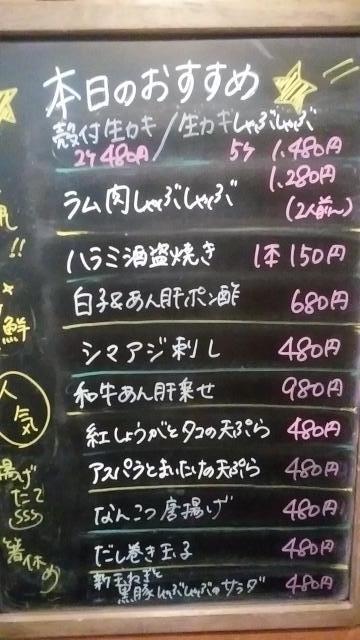 本日のおすすめ
殻付生カキ/生カキしゃぶしゃぶ
2ケ 480円 5ケ 1,480円
ラム肉しゃぶしゃぶ 1,280円
(2人前〜)
ハラミ酒盗焼き 1本 150円
白子&あん肝ポン酢 680円
シマアジ刺し 480円
和牛あん肝乗せ 980円
紅しょうがとタコの天ぷら 480円
アスパラとまいたけの天ぷら 480円
なんこつ唐揚げ 480円
だし巻き玉子 480円
新玉ねぎと
黒豚しゃぶしゃぶのサラダ 480円
!!
鮮
人気
揚げ
たて
SSS
箸休め